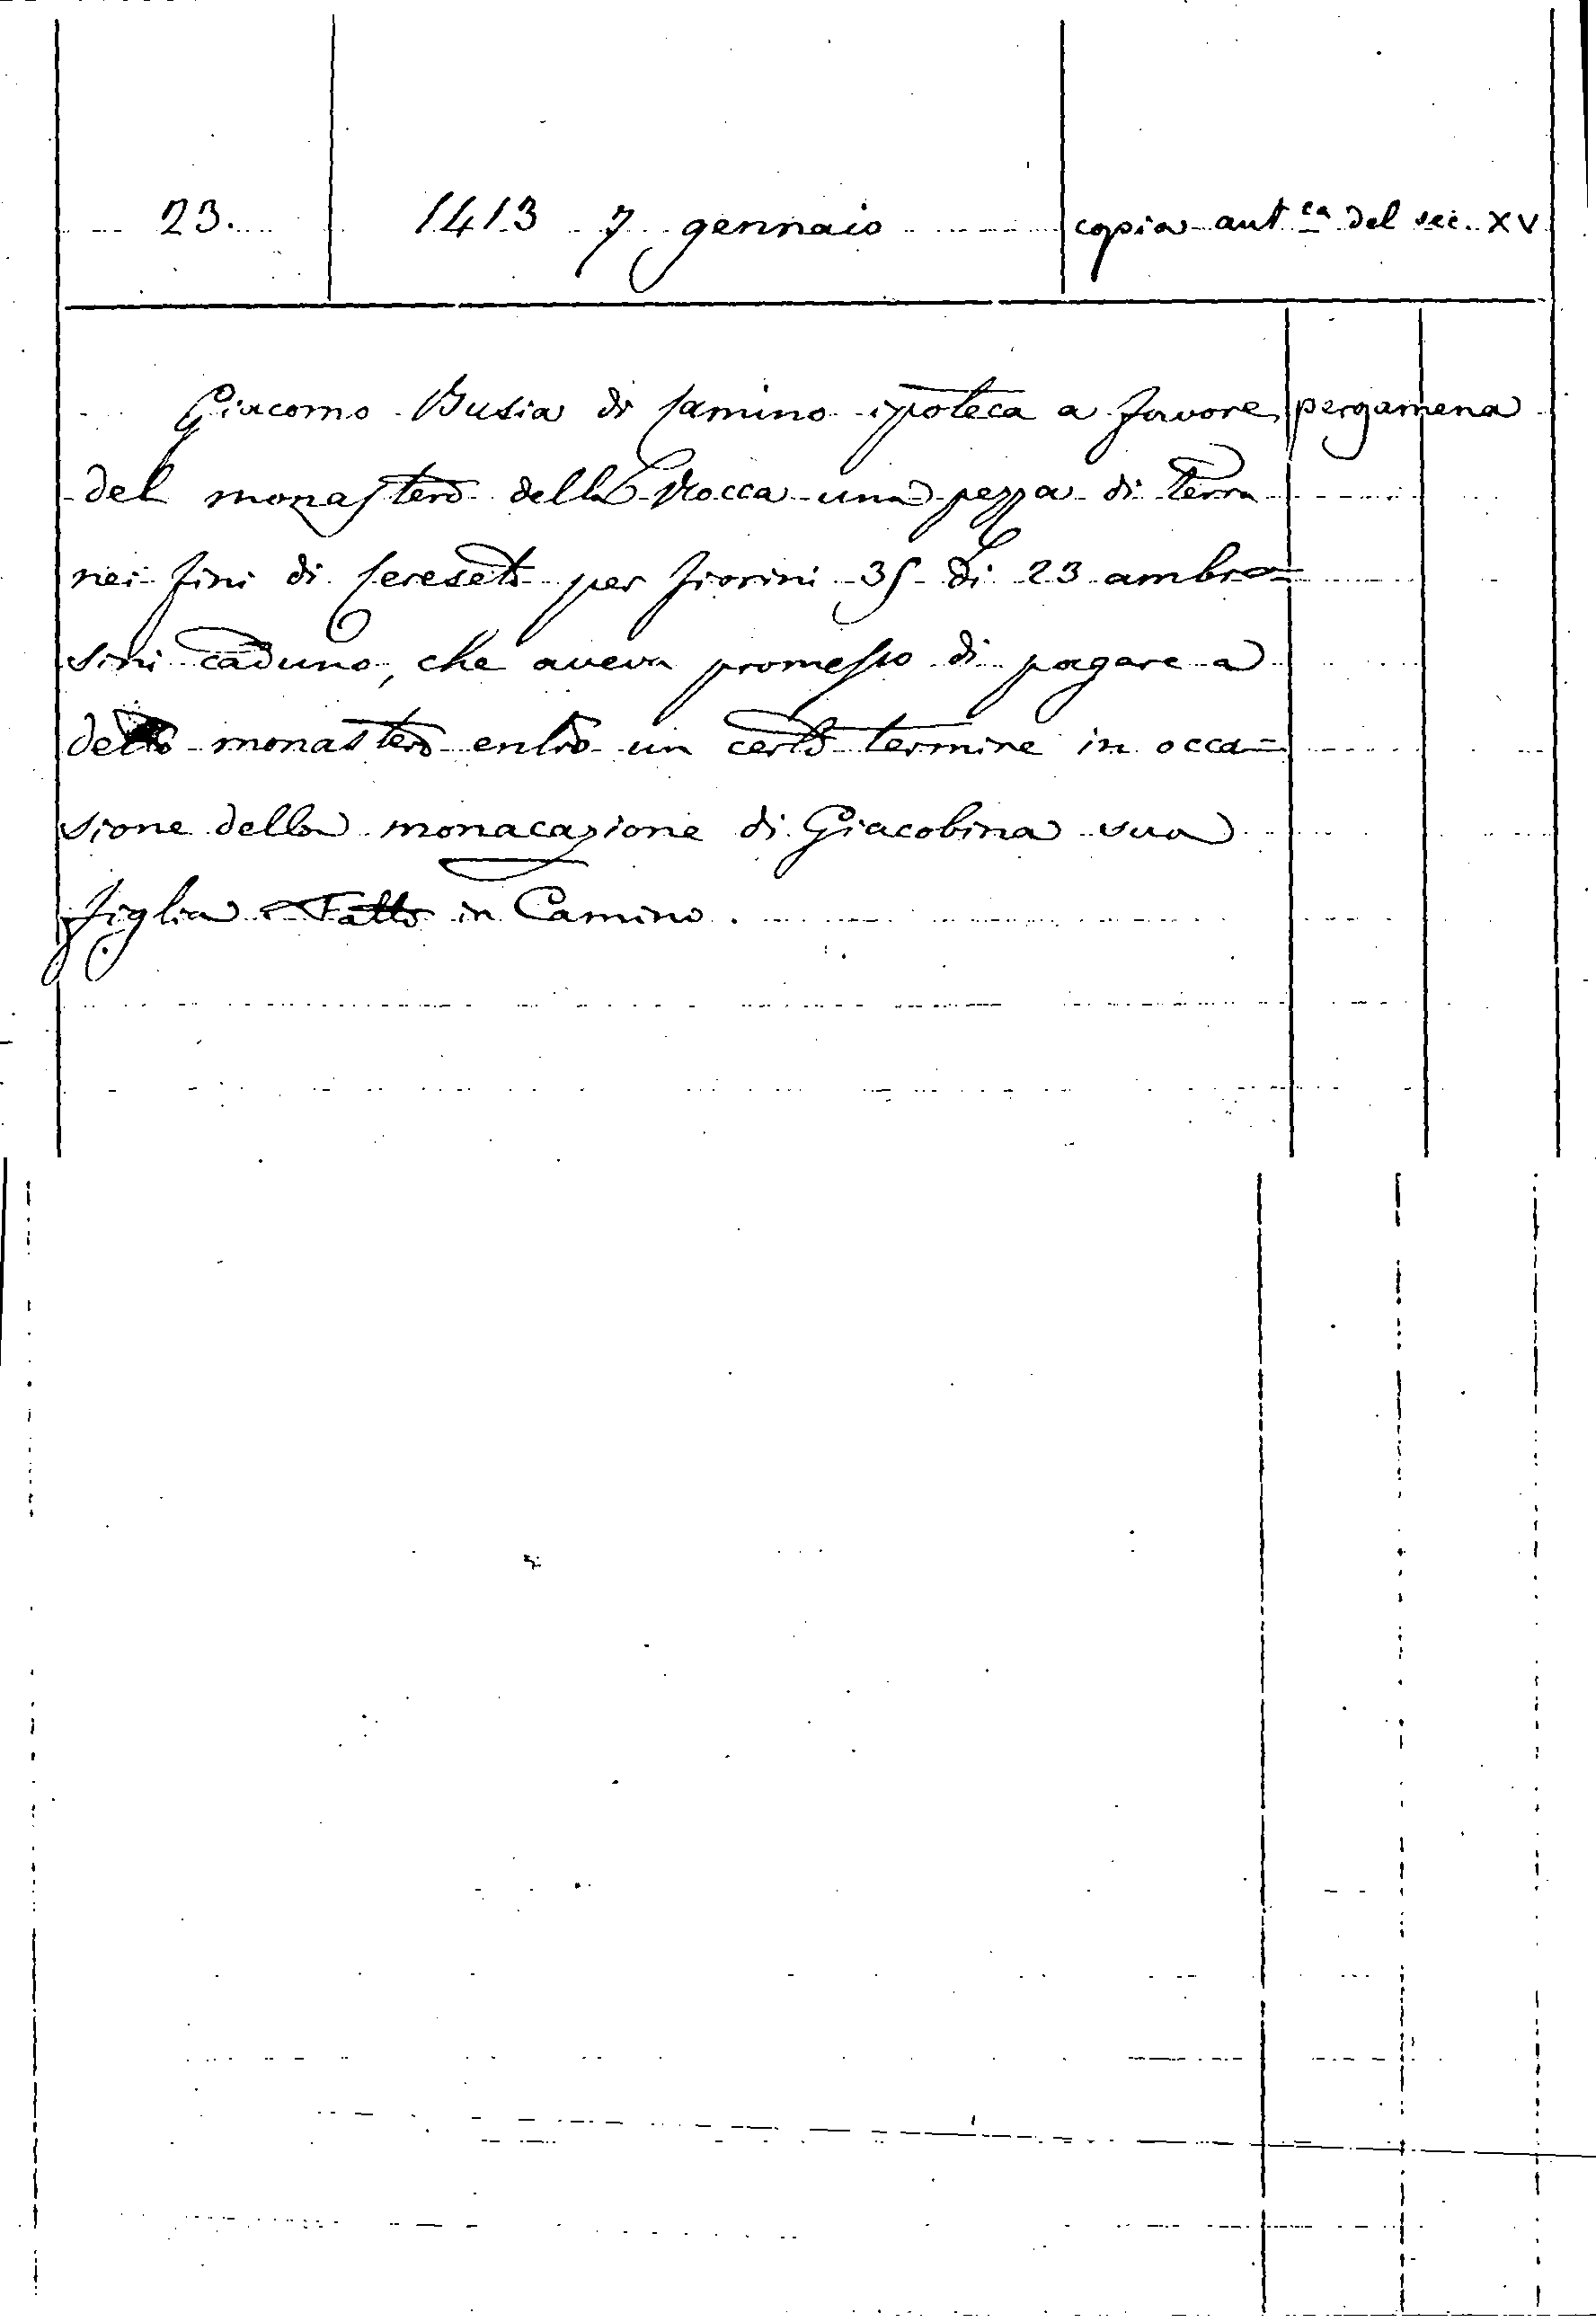 23. 1413 7 gennaio copia aut.ca del sec. XV
Giacomo Busia di Camino ipoteca a favore pergamena
del monastero della Rocca una pezza di terra
nei fini di Cereseto per fiorini 35 di 23 ambro=
sini caduno, che aveva promesso di pagare a
detto monastero entro un certo termine in occa=
sione della monacazione di Giacobina sua
figlia. Fatto in Camino.